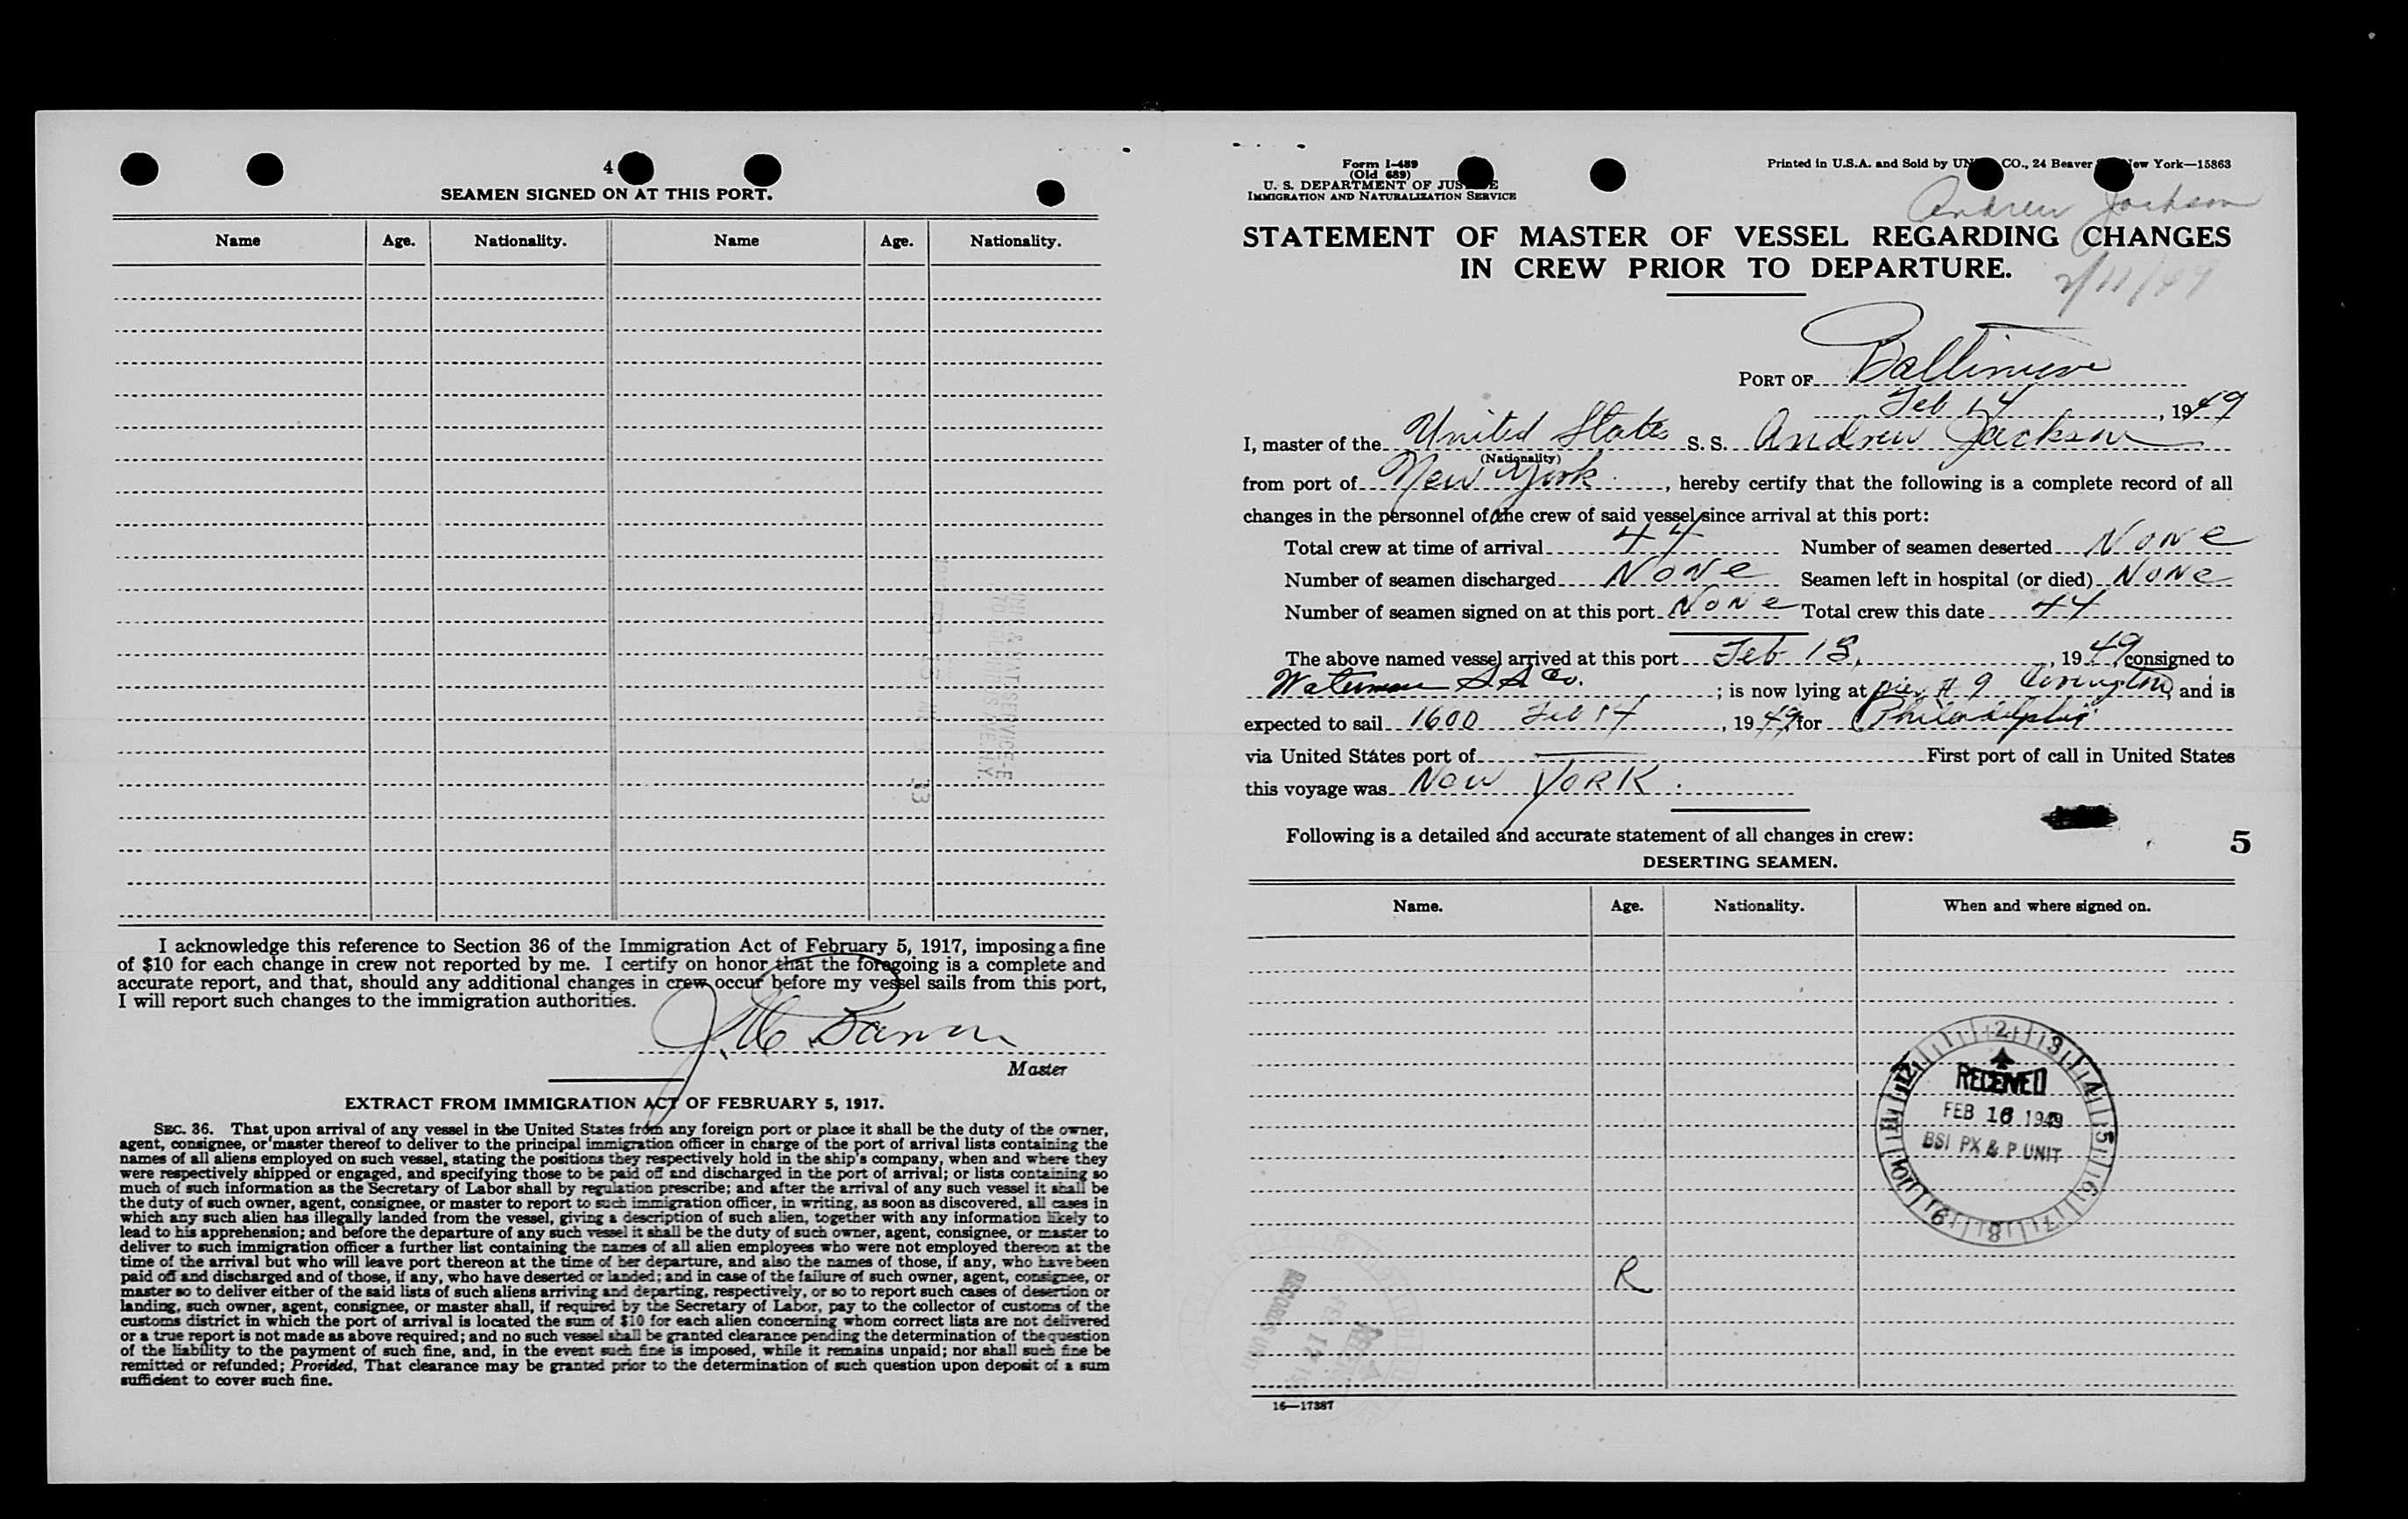 4
SEAMEN SIGNED ON AT THIS PORT.
Name Age. Nationality. Name Age. Nationality.
I acknowledge this reference to Section 36 of the Immigration Act of February 5, 1917, imposing a fine
of $10 for each change in crew not reported by me. I certify on honor that the foregoing is a complete and
accurate report, and that, should any additional changes in crew occur before my vessel sails from this port,
I will report such changes to the immigration authorities.
Master
EXTRACT FROM IMMIGRATION ACT OF FEBRUARY 5, 1917.
SEC. 36. That upon arrival of any vessel in the United States from any foreign port or place it shall be the duty of the owner,
agent, consignee, or master thereof to deliver to the principal immigration officer in charge of the port of arrival lists containing the
names of all aliens employed on such vessel, stating the positions they respectively hold in the ship's company, when and where they
were respectively shipped or engaged, and specifying those to be paid off and discharged in the port of arrival; or lists containing so
much of such information as the Secretary of Labor shall by regulation prescribe; and after the arrival of any such vessel it shall be
the duty of such owner, agent, consignee, or master to report to such immigration officer, in writing, as soon as discovered, all cases in
which any such alien has illegally landed from the vessel, giving a description of such alien, together with any information likely to
lead to his apprehension; and before the departure of any such vessel it shall be the duty of such owner, agent, consignee, or master to
deliver to such immigration officer a further list containing the names of all alien employees who were not employed thereon at the
time of the arrival but who will leave port thereon at the time of her departure, and also the names of those, if any, who have been
paid off and discharged and of those, if any, who have deserted or landed; and in case of the failure of such owner, agent, consignee, or
master so to deliver either of the said lists of such aliens arriving and departing, respectively, or so to report such cases of desertion or
landing, such owner, agent, consignee, or master shall, if required by the Secretary of Labor, pay to the collector of customs of the
customs district in which the port of arrival is located the sum of $10 for each alien concerning whom correct lists are not delivered
or a true report is not made as above required; and no such vessel shall be granted clearance pending the determination of the question
of the liability to the payment of such fine, and, in the event such fine is imposed, while it remains unpaid; nor shall such fine be
remitted or refunded; Provided, That clearance may be granted prior to the determination of such question upon deposit of a sum
sufficient to cover such fine.
Form I-489
(Old 689)
U. S. DEPARTMENT OF JUSTICE
IMMIGRATION AND NATURALIZATION SERVICE
Printed in U.S.A. and Sold by CO., 24 Beaver New York—15863
Andrew Jackson
STATEMENT OF MASTER OF VESSEL REGARDING CHANGES
IN CREW PRIOR TO DEPARTURE.
2/11/49
PORT OF Baltimore
Feb 14, 1949
I, master of the United States S. S. Andrew Jackson
(Nationality)
from port of New York, hereby certify that the following is a complete record of all
changes in the personnel of the crew of said vessel since arrival at this port:
Total crew at time of arrival 44 Number of seamen deserted None
Number of seamen discharged None Seamen left in hospital (or died) None
Number of seamen signed on at this port None Total crew this date 44
The above named vessel arrived at this port Feb 13, 1949, consigned to
Waterman S.S. Co. ; is now lying at pier # 9 Covington, and is
expected to sail 1600 Feb 14, 1949, for Philadelphia
via United States port of First port of call in United States
this voyage was New York.
Following is a detailed and accurate statement of all changes in crew:
5
DESERTING SEAMEN.
Name. Age. Nationality. When and where signed on.
12 1 2 3 4 5 6 7 8 9 10 11
RECEIVED
FEB 16 1949
BSI PX & P UNIT
R
16—17387